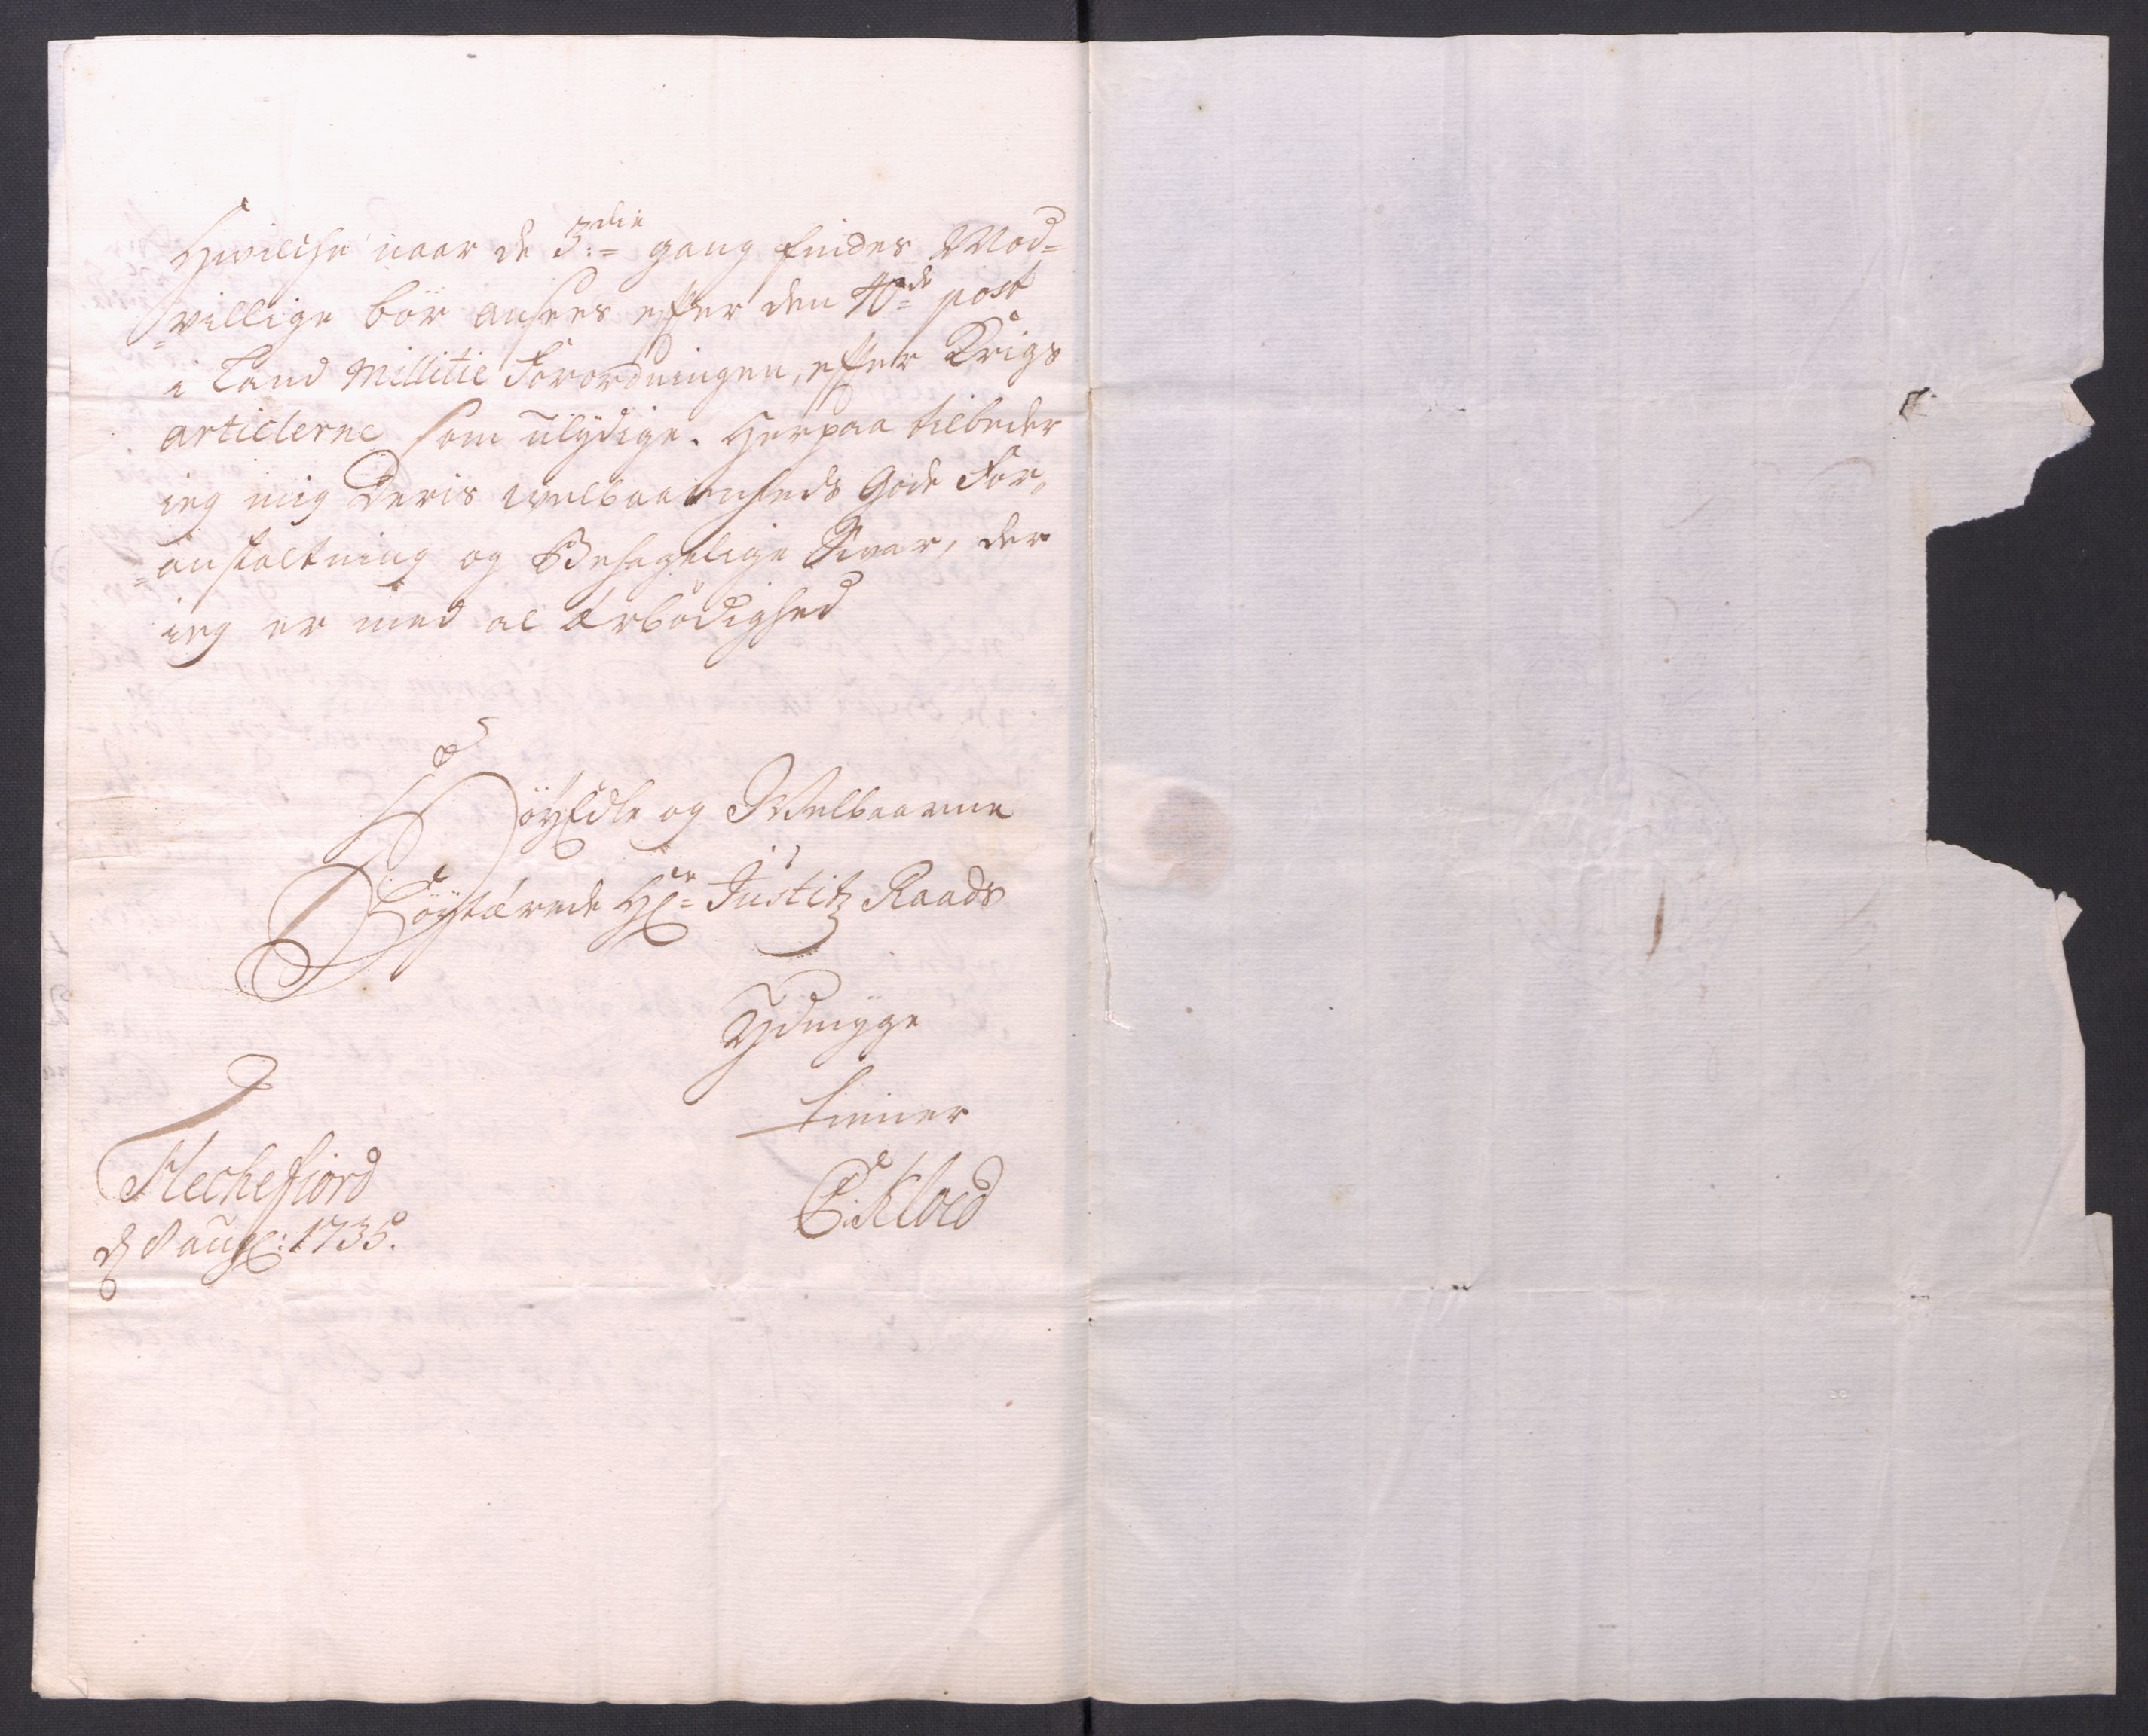 Hvilche naar de 3:die gang findes Mod=
=villige bör ansees efter den 40de post
i Land Millitie Forordningen, efter Krigs
articlerne som ulydige. Herpaa tilbeder
ieg mig Deris Welbaarenheds Gode For,,
=anstaltning og Behagelige Svar, der
ieg er med al Ærbödighed
HöyEdle og Welbaarne
Höytærede Hr= Justitz Raads
Ydmyge
tiener
Flechefiord
d 8 aug: 1735.